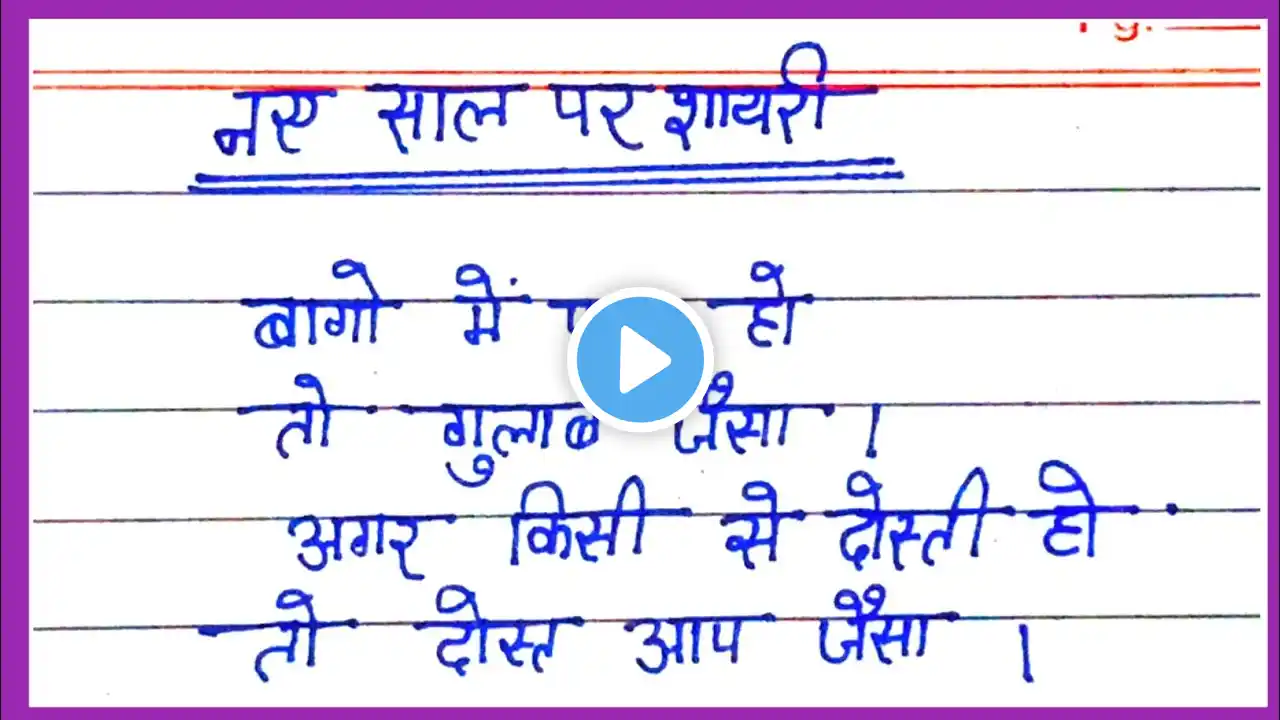 Pg.
नए साल पर शायरी
बागो में हो
तो गुलाब जैसा ।
अगर किसी से दोस्ती हो
तो दोस्त आप जैसा ।